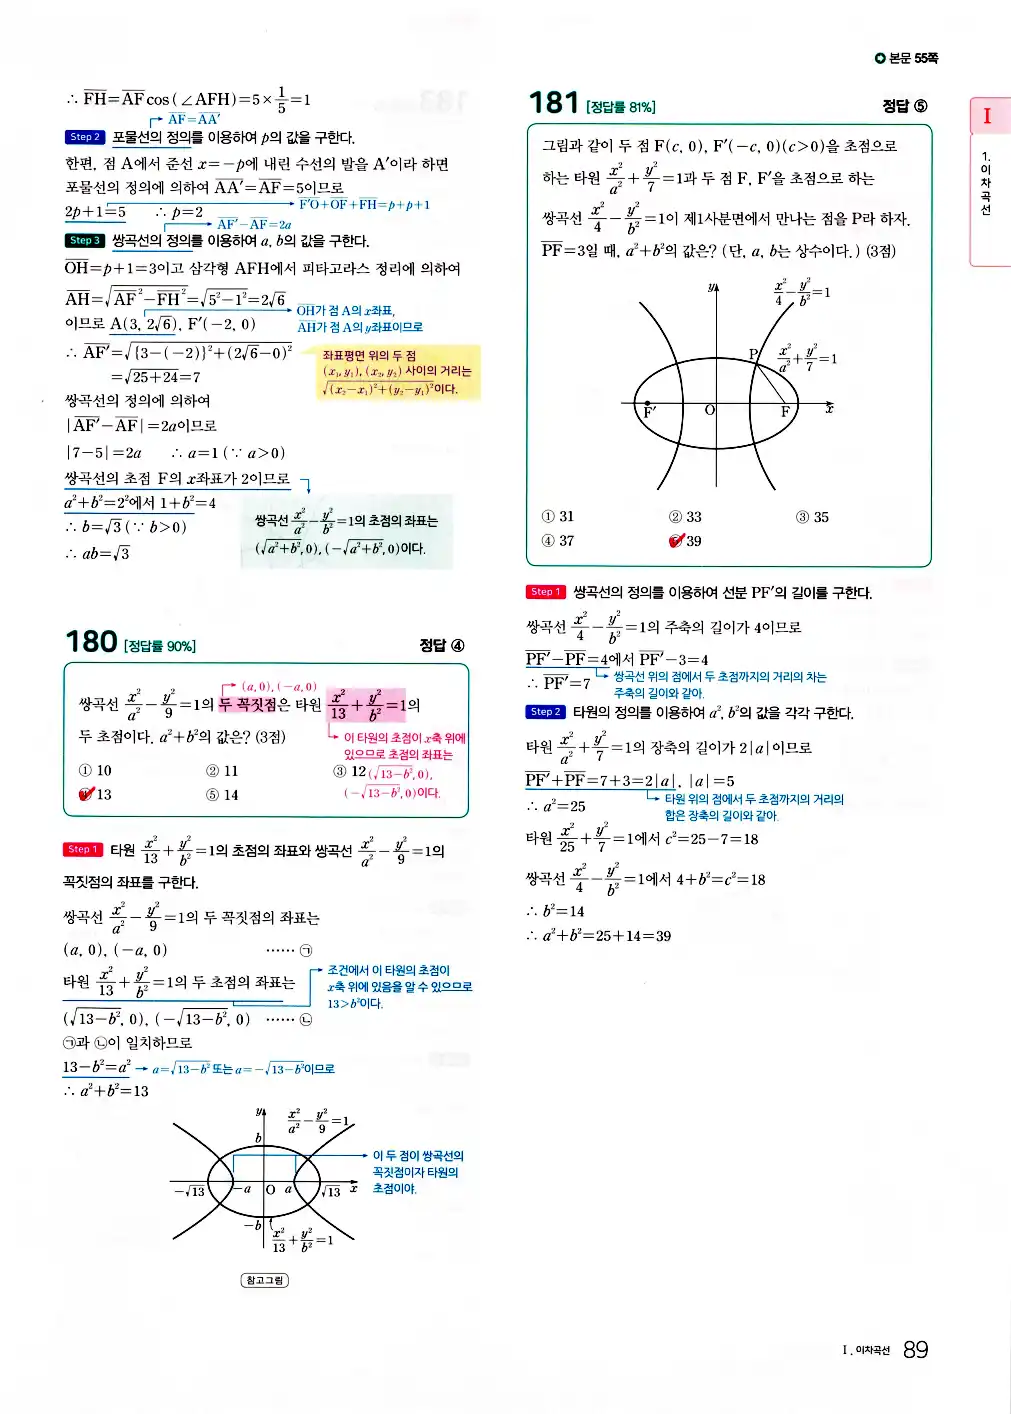 본문 55쪽
∴ FH=AF cos(∠AFH)=5×1/5=1
AF=AA′
Step 2 포물선의 정의를 이용하여 p의 값을 구한다.
한편, 점 A에서 준선 x=-p에 내린 수선의 발을 A′이라 하면
포물선의 정의에 의하여 AA′=AF=5이므로
2p+1=5 ∴ p=2
F′O+OF+FH=p+p+1
AF′-AF=2a
Step 3 쌍곡선의 정의를 이용하여 a, b의 값을 구한다.
OH=p+1=3이고 삼각형 AFH에서 피타고라스 정리에 의하여
AH=√(AF²-FH²)=√(5²-1²)=2√6
이므로 A(3, 2√6), F′(-2, 0)
OH가 점 A의 x좌표,
AH가 점 A의 y좌표이므로
∴ AF′=√({3-(-2)}²+(2√6-0)²)
=√(25+24)=7
좌표평면 위의 두 점
(x₁, y₁), (x₂, y₂) 사이의 거리는
√((x₂-x₁)²+(y₂-y₁)²)이다.
쌍곡선의 정의에 의하여
|AF′-AF|=2a이므로
|7-5|=2a ∴ a=1 (∵ a>0)
쌍곡선의 초점 F의 x좌표가 2이므로
a²+b²=2²에서 1+b²=4
∴ b=√3 (∵ b>0)
∴ ab=√3
쌍곡선 x²/a²-y²/b²=1의 초점의 좌표는
(√(a²+b²), 0), (-√(a²+b²), 0)이다.
180 [정답률 90%] 정답 ④
(a, 0), (-a, 0)
쌍곡선 x²/a²-y²/9=1의 두 꼭짓점은 타원 x²/13+y²/b²=1의
두 초점이다. a²+b²의 값은? (3점)
이 타원의 초점이 x축 위에
있으므로 초점의 좌표는
(√(13-b²), 0),
(-√(13-b²), 0)이다.
① 10 ② 11 ③ 12
④ 13 ⑤ 14
Step 1 타원 x²/13+y²/b²=1의 초점의 좌표와 쌍곡선 x²/a²-y²/9=1의
꼭짓점의 좌표를 구한다.
쌍곡선 x²/a²-y²/9=1의 두 꼭짓점의 좌표는
(a, 0), (-a, 0) …… ㉠
타원 x²/13+y²/b²=1의 두 초점의 좌표는
조건에서 이 타원의 초점이
x축 위에 있음을 알 수 있으므로
13>b²이다.
(√(13-b²), 0), (-√(13-b²), 0) …… ㉡
㉠과 ㉡이 일치하므로
13-b²=a² → a=√(13-b²) 또는 a=-√(13-b²)이므로
∴ a²+b²=13
y
x²/a²-y²/9=1
b
-√13 -a O a √13 x
-b
x²/13+y²/b²=1
이 두 점이 쌍곡선의
꼭짓점이자 타원의
초점이야.
참고그림
181 [정답률 81%] 정답 ⑤
그림과 같이 두 점 F(c, 0), F′(-c, 0)(c>0)을 초점으로
하는 타원 x²/a²+y²/7=1과 두 점 F, F′을 초점으로 하는
쌍곡선 x²/4-y²/b²=1이 제1사분면에서 만나는 점을 P라 하자.
PF=3일 때, a²+b²의 값은? (단, a, b는 상수이다.) (3점)
y
x²/4-y²/b²=1
P
x²/a²+y²/7=1
F′ O F x
① 31 ② 33 ③ 35
④ 37 ⑤ 39
Step 1 쌍곡선의 정의를 이용하여 선분 PF′의 길이를 구한다.
쌍곡선 x²/4-y²/b²=1의 주축의 길이가 4이므로
PF′-PF=4에서 PF′-3=4
∴ PF′=7
쌍곡선 위의 점에서 두 초점까지의 거리의 차는
주축의 길이와 같아.
Step 2 타원의 정의를 이용하여 a², b²의 값을 각각 구한다.
타원 x²/a²+y²/7=1의 장축의 길이가 2|a|이므로
PF′+PF=7+3=2|a|, |a|=5
∴ a²=25
타원 위의 점에서 두 초점까지의 거리의
합은 장축의 길이와 같아.
타원 x²/25+y²/7=1에서 c²=25-7=18
쌍곡선 x²/4-y²/b²=1에서 4+b²=c²=18
∴ b²=14
∴ a²+b²=25+14=39
I
1.
이
차
곡
선
I. 이차곡선 89